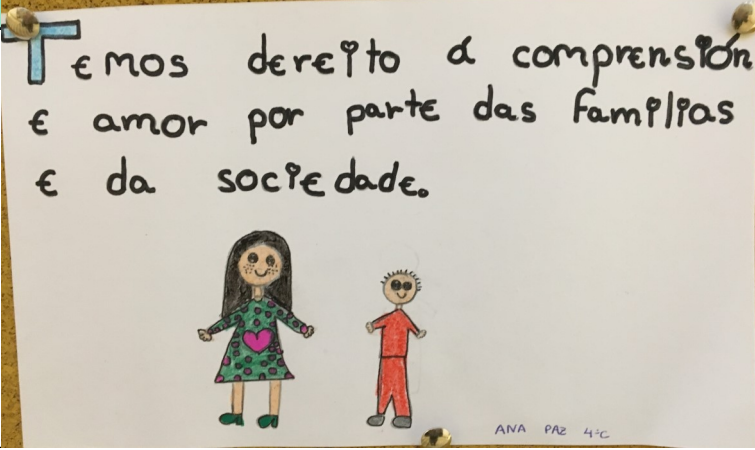 Temos dereito á comprensión
e amor por parte das familias
e da sociedade.
ANA PAZ 4ºC